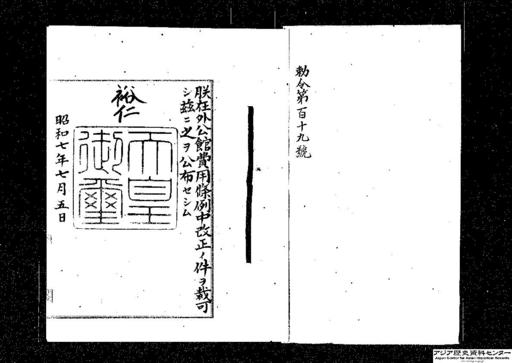 勅令第百十九號
朕在外公館費用條例中改正ノ件ヲ裁可
シ茲ニ之ヲ公布セシム
裕仁
天皇御璽
昭和七年七月五日
アジア歴史資料センター
Japan Center for Asian Historical Records